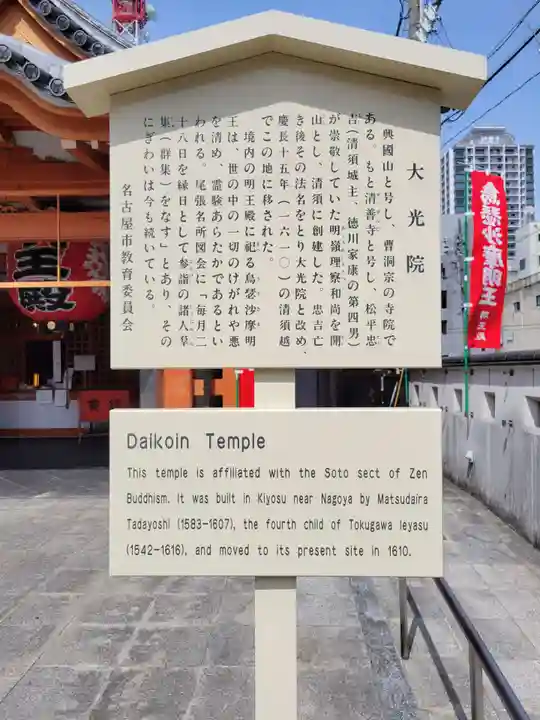 大光院
興國山と号し、曹洞宗の寺院で
ある。もと清善寺と号し、松平忠
吉(清須城主、徳川家康の第四男)
が崇敬していた明嶺理察和尚を開
山とし、清須に創建した。忠吉亡
き後その法名をとり大光院と改め、
慶長十五年(一六一〇)の清須越
でこの地に移された。
境内の明王殿に祀る烏瑟沙摩明
王は、世の中の一切のけがれや悪
を清め、霊験あらたかであるとい
われる。尾張名所図会に「毎月二
十八日を縁日として参詣の諸人草
集(群集)をなす」とあり、その
にぎわいは今も続いている。
名古屋市教育委員会
Daikoin Temple
This temple is affiliated with the Soto sect of Zen
Buddhism. It was built in Kiyosu near Nagoya by Matsudaira
Tadayoshi (1583-1607), the fourth child of Tokugawa Ieyasu
(1542-1616), and moved to its present site in 1610.
烏瑟沙摩明王
明王殿